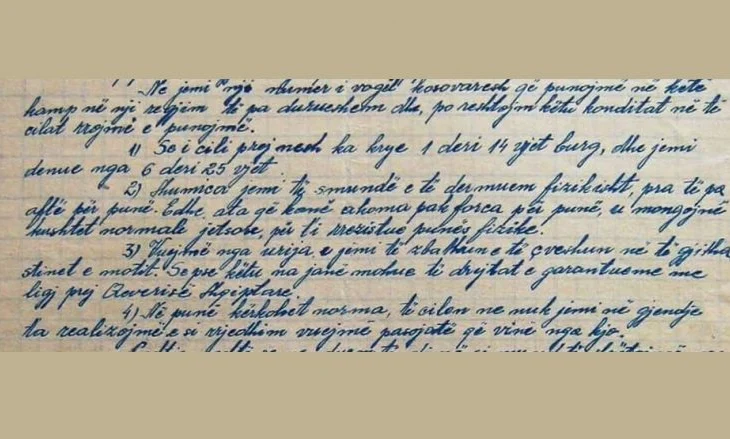 Ne jemi një numer i vogël kosovaresh që punojmë në këtë
kamp në nji regjim të pa durueshem dhe, po reshtojm këtu konditat në të
cilat rrojmë e punojmë.
1) Se i cili prej nesh ka krye 1 deri 14 vjet burg, dhe jemi
denue nga 6 deri 25 vjet
2) Shumica jemi të smundë e të dermuem fizikisht, pra të pa
aftë për punë. Edhe, ata që kanë akoma pak forca për punë, u mongojnë
kushtet normale jetsore, për ti rrezistue punës fizike.
3) Vuejmë nga urija, e jemi të zbathun e të çveshun në të gjitha
stinet e motit. Sepse këtu na janë mohue të drejtat e garantueme me
ligj prej Qeverisë Shqiptare
4) Në punë kërkohet norma, të cilen ne nuk jemi në gjendje
ta realizojmë e si rrjedhim vuejmë pasojatë që vinë nga kjo.